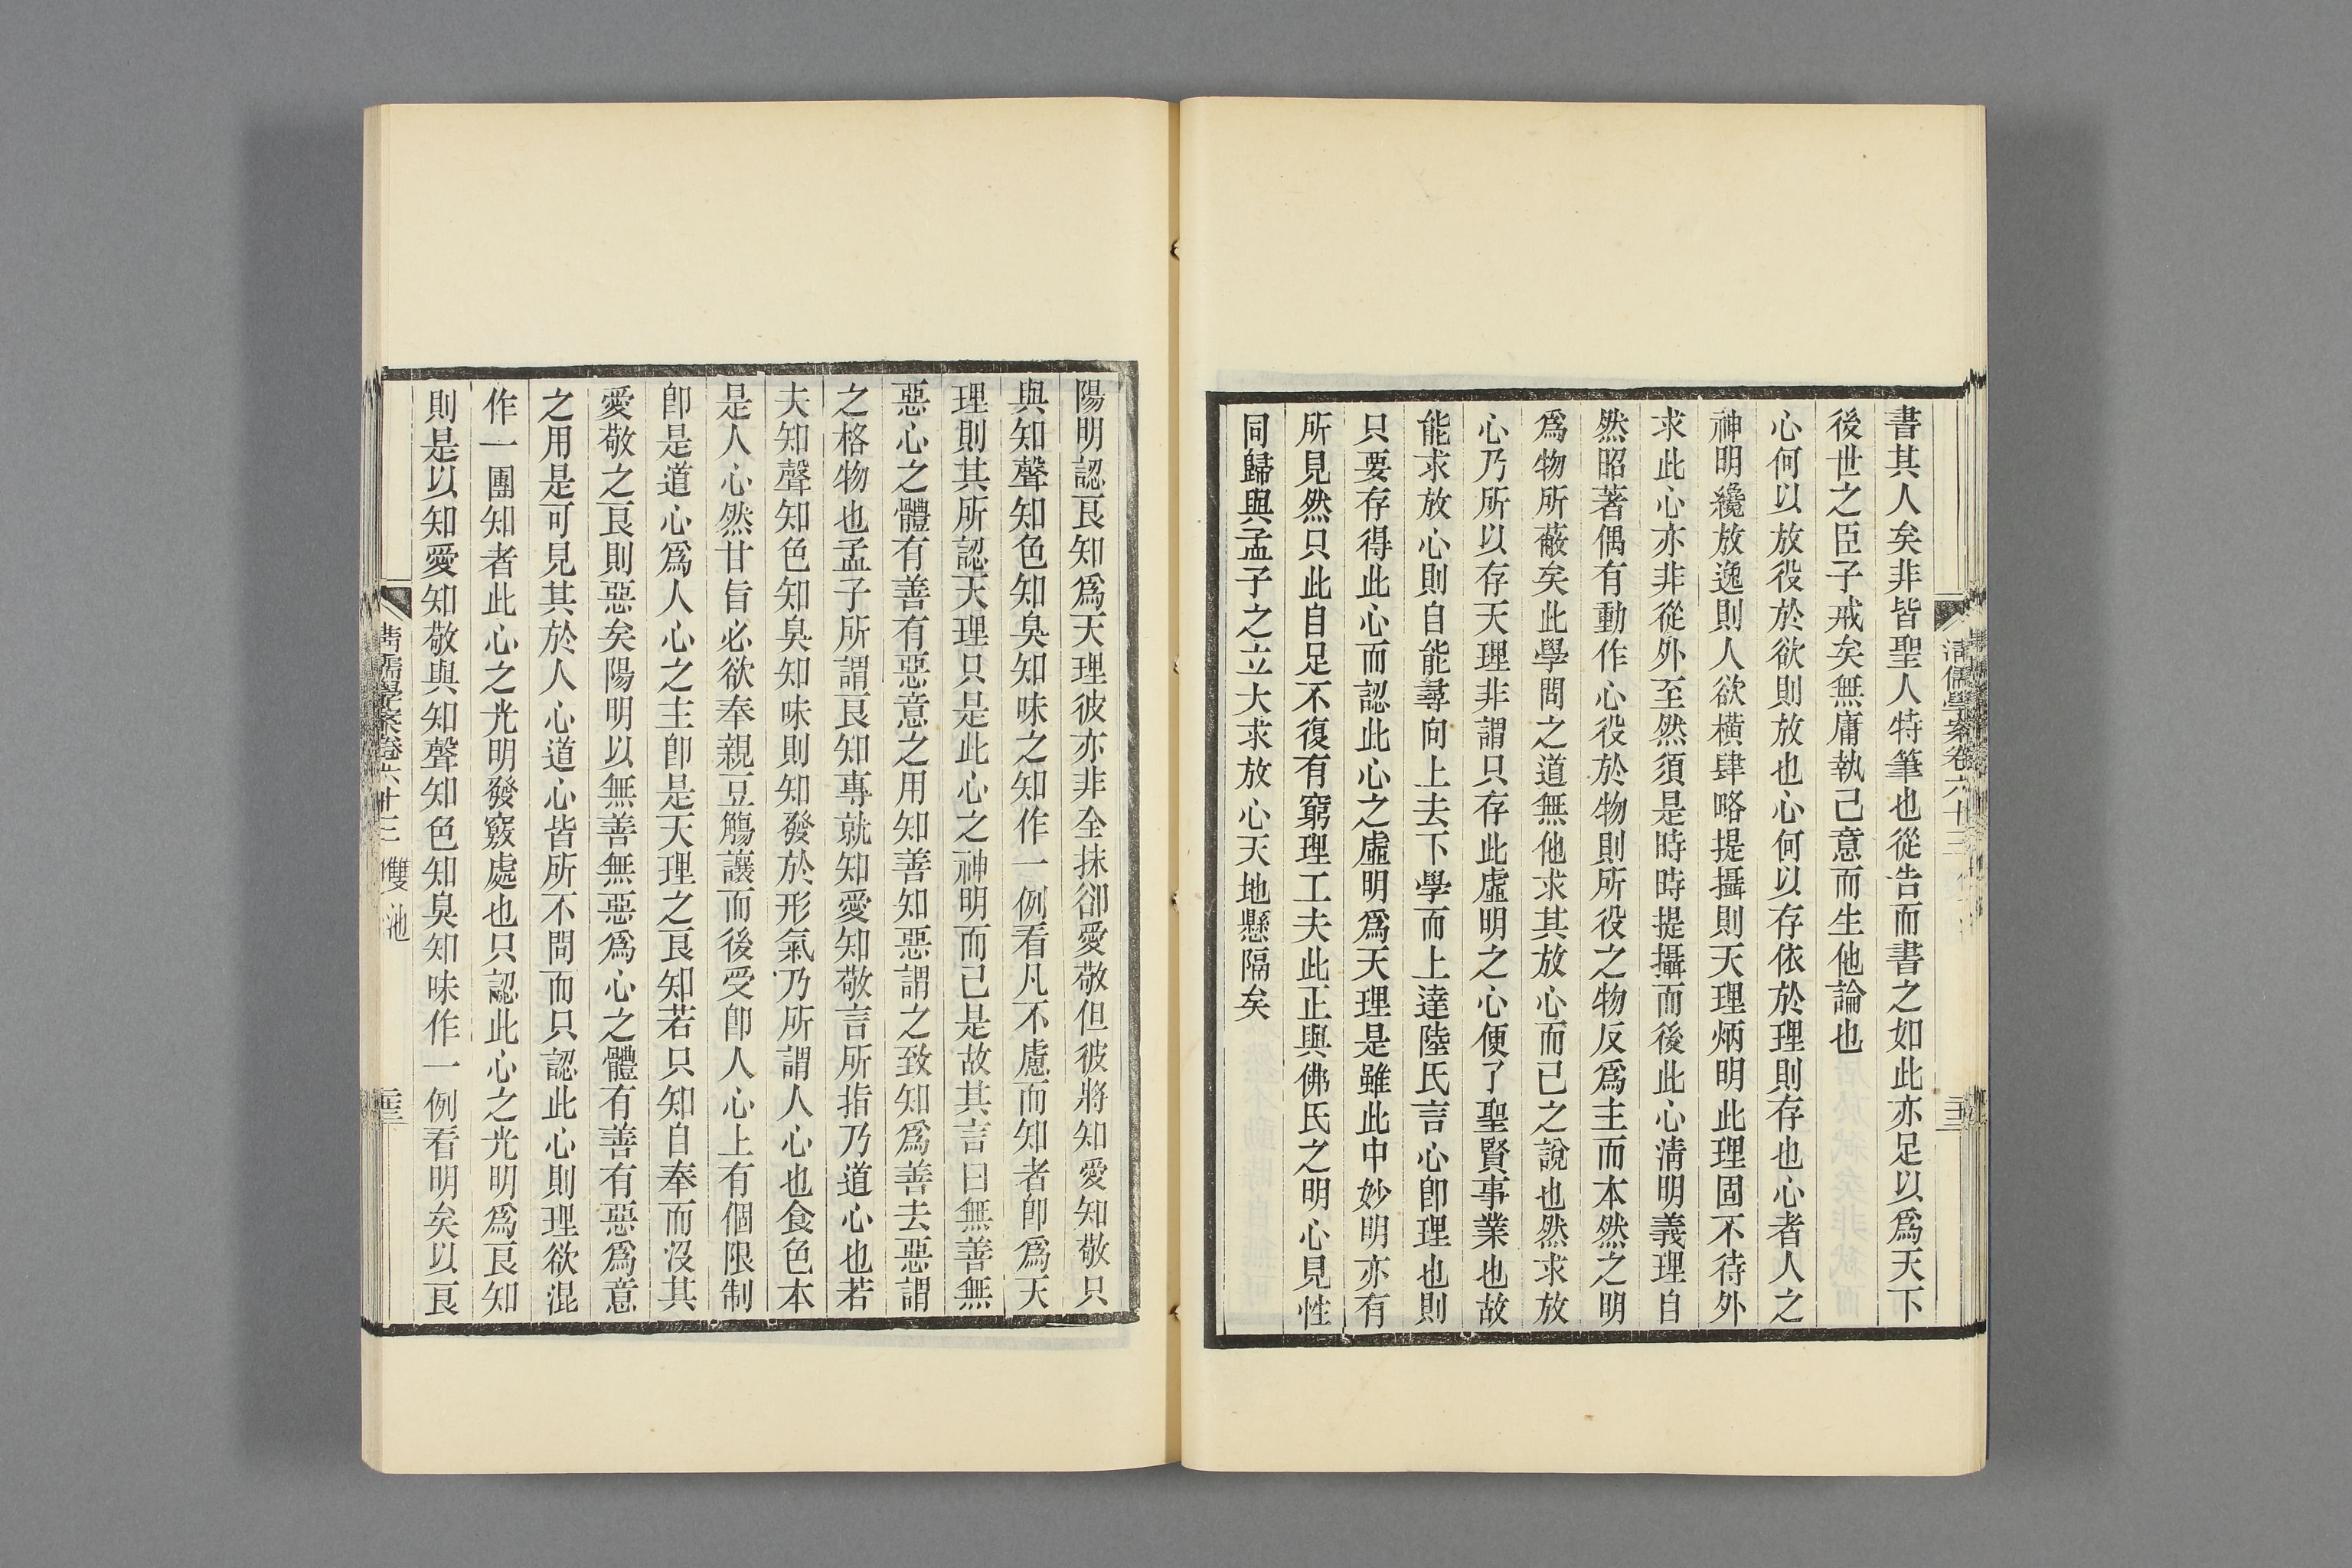 清儒學案卷六十三
書其人矣非皆聖人特筆也從告而書之如此亦足以爲天下
後世之臣子戒矣無庸執己意而生他論也
心何以放役於欲則放也心何以存依於理則存也心者人之
神明纔放逸則人欲橫肆略提攝則天理炳明此理固不待外
求此心亦非從外至然須是時時提攝而後此心淸明義理自
然昭著偶有動作心役於物則所役之物反爲主而本然之明
爲物所蔽矣此學問之道無他求其放心而已之說也然求放
心乃所以存天理非謂只存此虛明之心便了聖賢事業也故
能求放心則自能尋向上去下學而上達陸氏言心卽理也則
只要存得此心而認此心之虛明爲天理是雖此中妙明亦有
所見然只此自足不復有窮理工夫此正與佛氏之明心見性
同歸與孟子之立大求放心天地懸隔矣
陽明認良知爲天理彼亦非全抹卻愛敬但彼將知愛知敬只
與知聲知色知臭知味之知作一例看凡不慮而知者卽爲天
理則其所認天理只是此心之神明而已是故其言曰無善無
惡心之體有善有惡意之用知善知惡謂之致知爲善去惡謂
之格物也孟子所謂良知專就知愛知敬言所指乃道心也若
夫知聲知色知臭知味則知發於形氣乃所謂人心也食色本
是人心然甘旨必欲奉親豆觴讓而後受卽人心上有個限制
卽是道心爲人心之主卽是天理之良知若只知自奉而沒其
愛敬之良則惡矣陽明以無善無惡爲心之體有善有惡爲意
之用是可見其於人心道心皆所不問而只認此心則理欲混
作一團知者此心之光明發竅處也只認此心之光明爲良知
則是以知愛知敬與知聲知色知臭知味作一例看明矣以良
清儒學案卷六十三 雙池